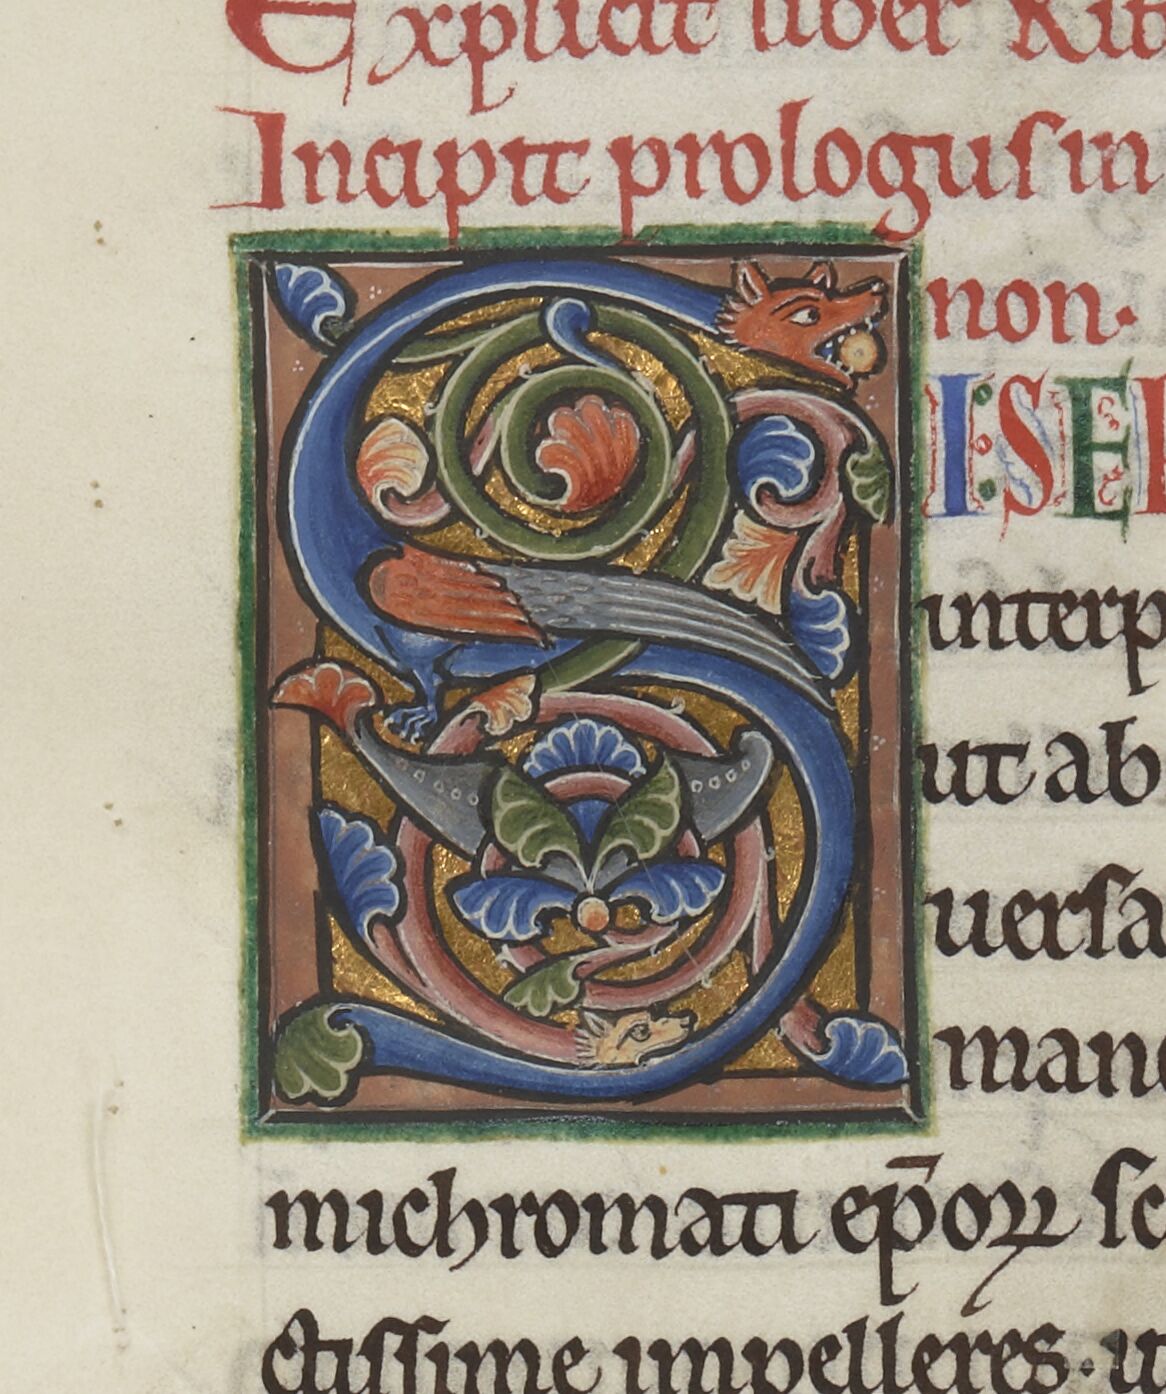 Explicit liber Rut
Incipit prologus in
non.
S I: SE
interp
ut ab
uersa
mand
michromati ep̄oꝝ sc
ctissime impelleres. ut